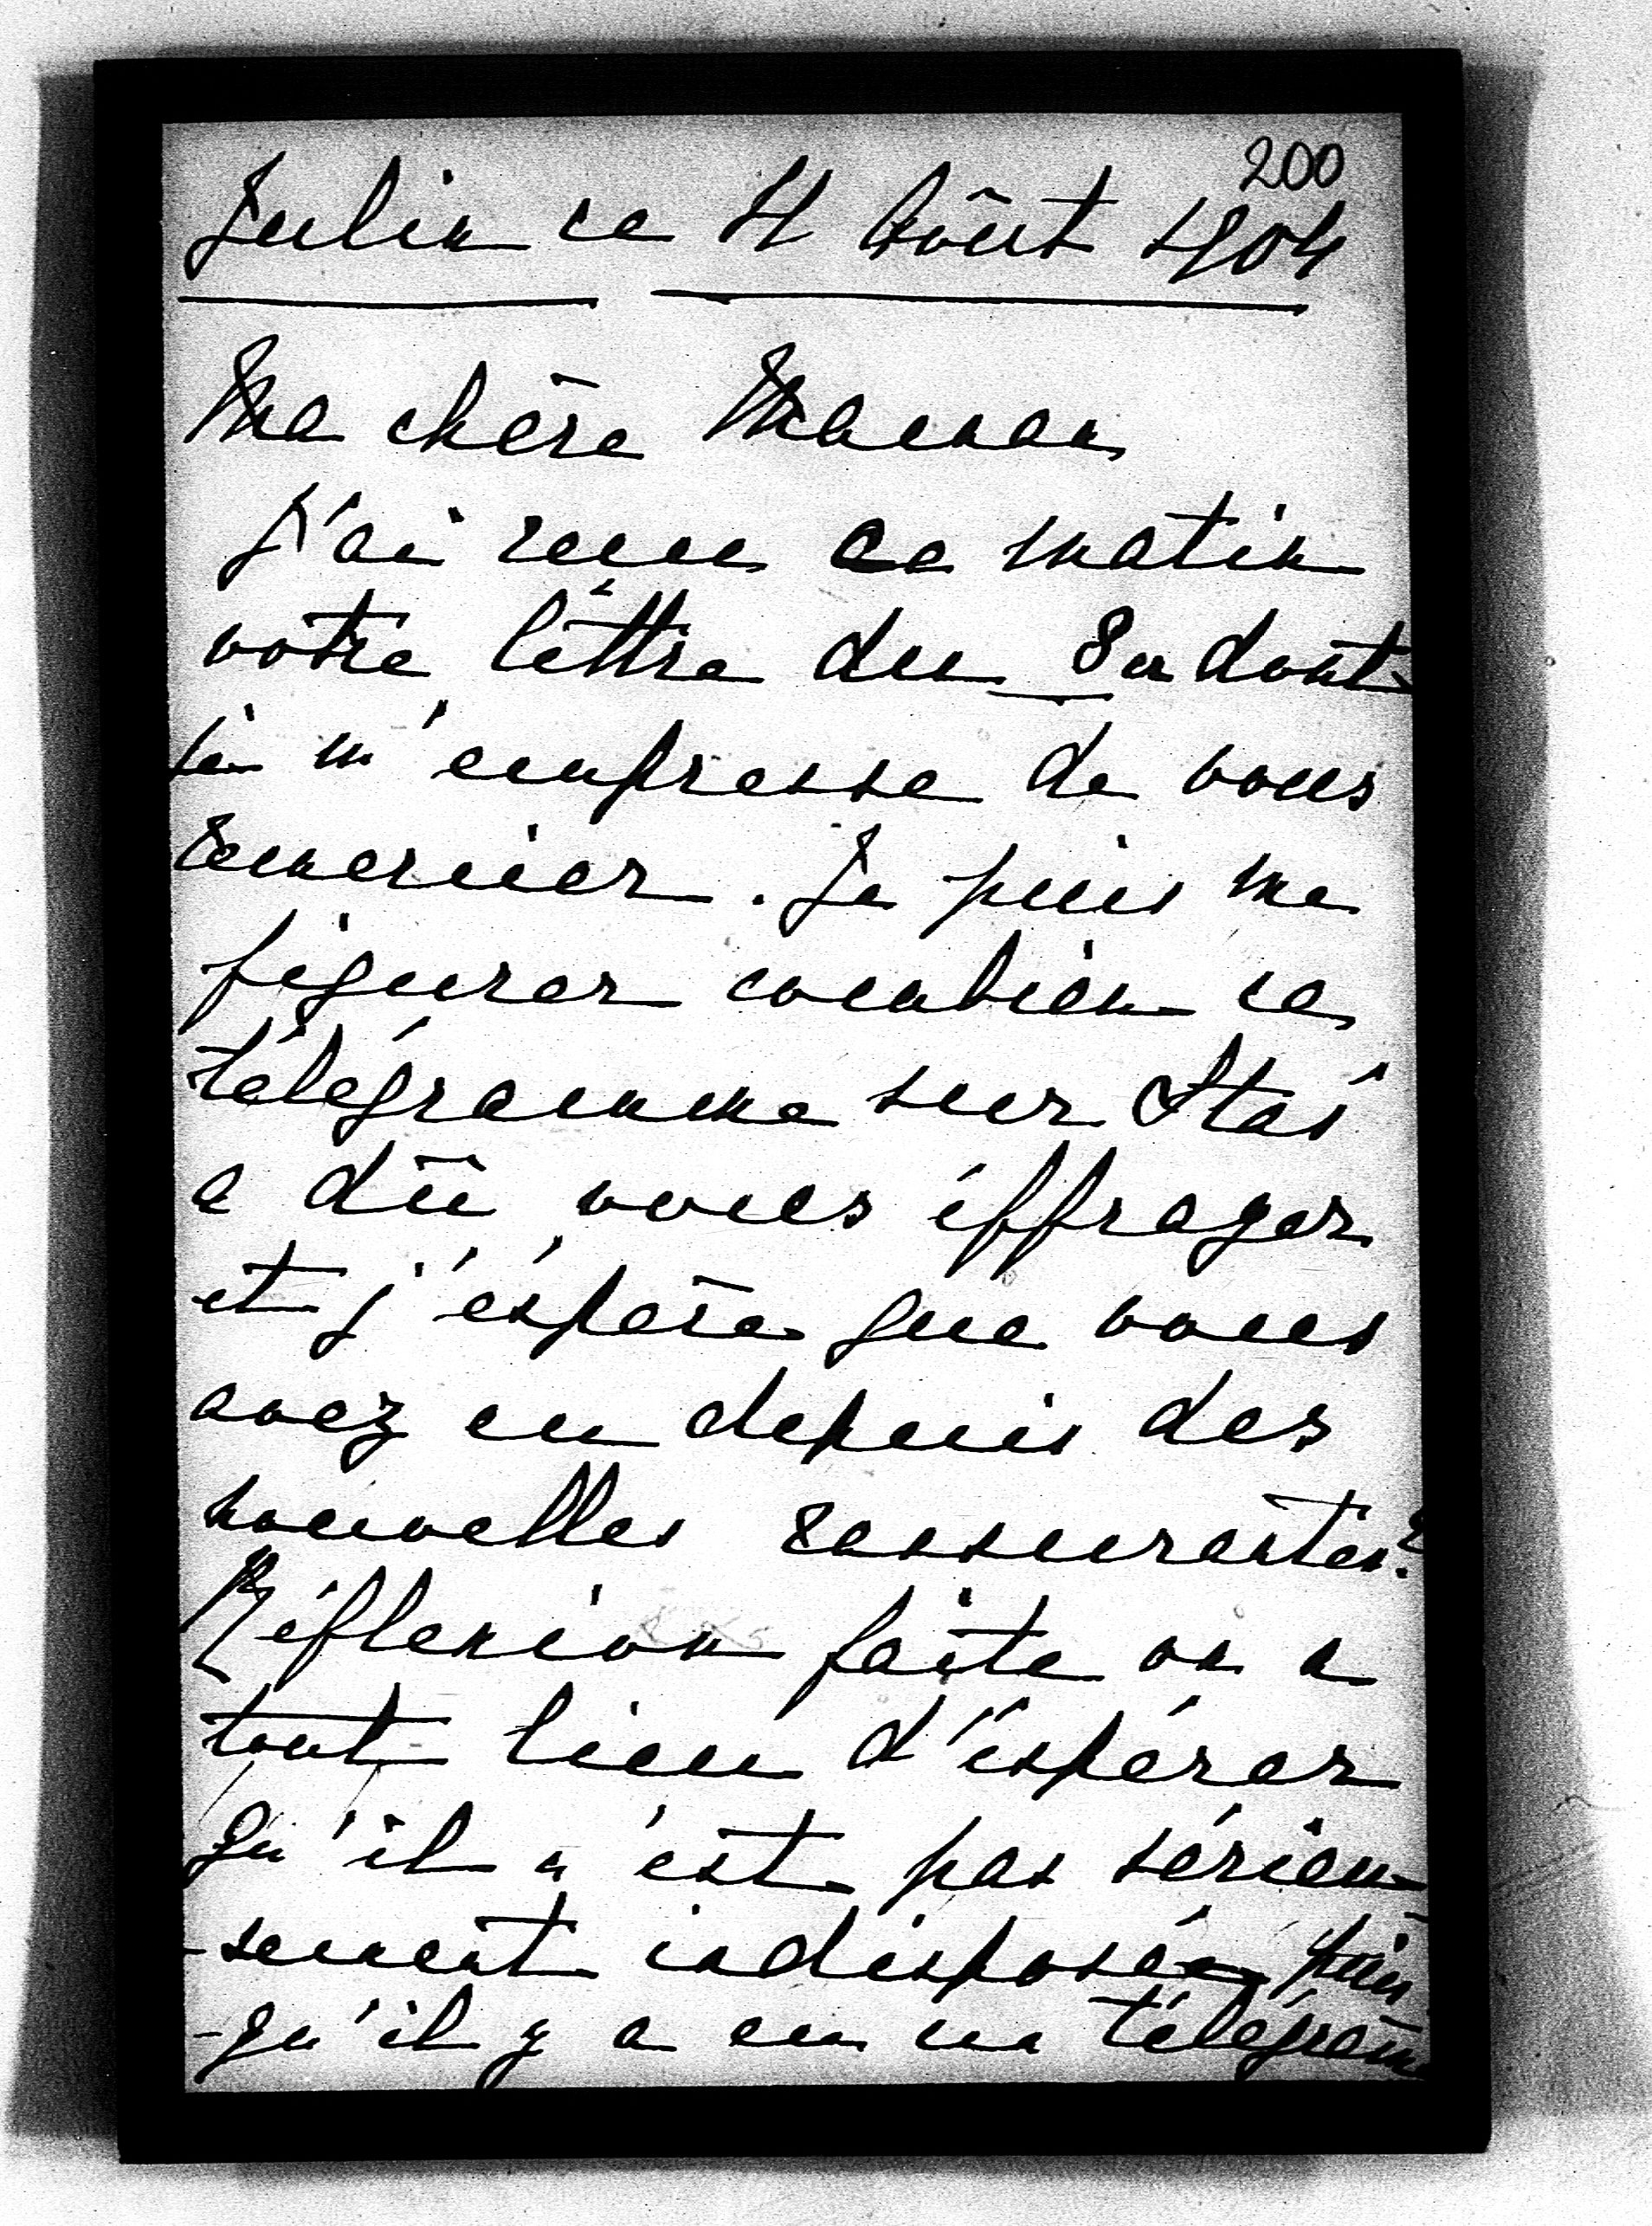 200
Julin ce 4 Août 1904
Ma chère Maman
J'ai reçu ce matin
votre léttre du dont
je m'empresse de vous
remercier. Je puis me
figurer combien ce
télégramme sur Staś
a dû vous éffrayer
et j'éspère que vous
avez eu depuis des
nouvelles rassurantes?
Réflexion faite on a
tout lieu d'éspérer
qu'il n'est pas sérieu-
-sement indisposé, puis
-qu'il y a eu un télégramme